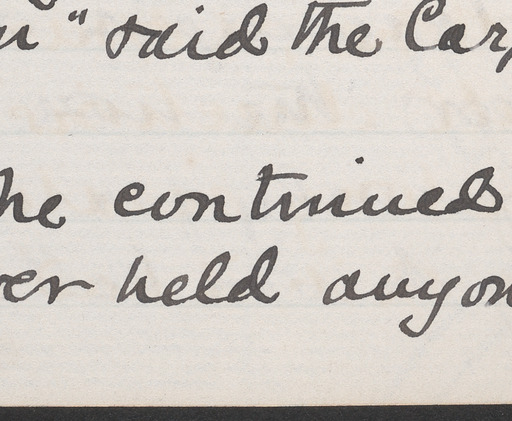 " said the Car
he continued
ver held anyon